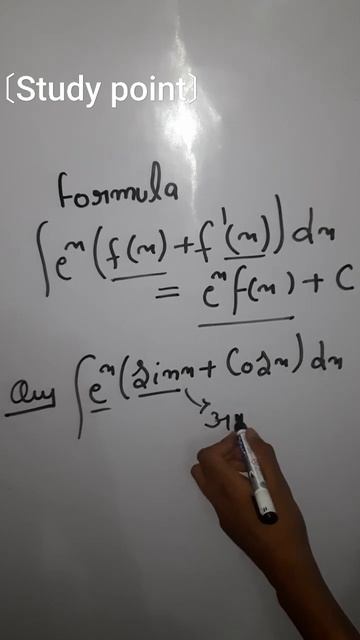 [Study point]
Formula
∫eˣ(f(x)+f'(x))dx
= eˣf(x)+C
Que ∫eˣ(sinx+Cosx)dx